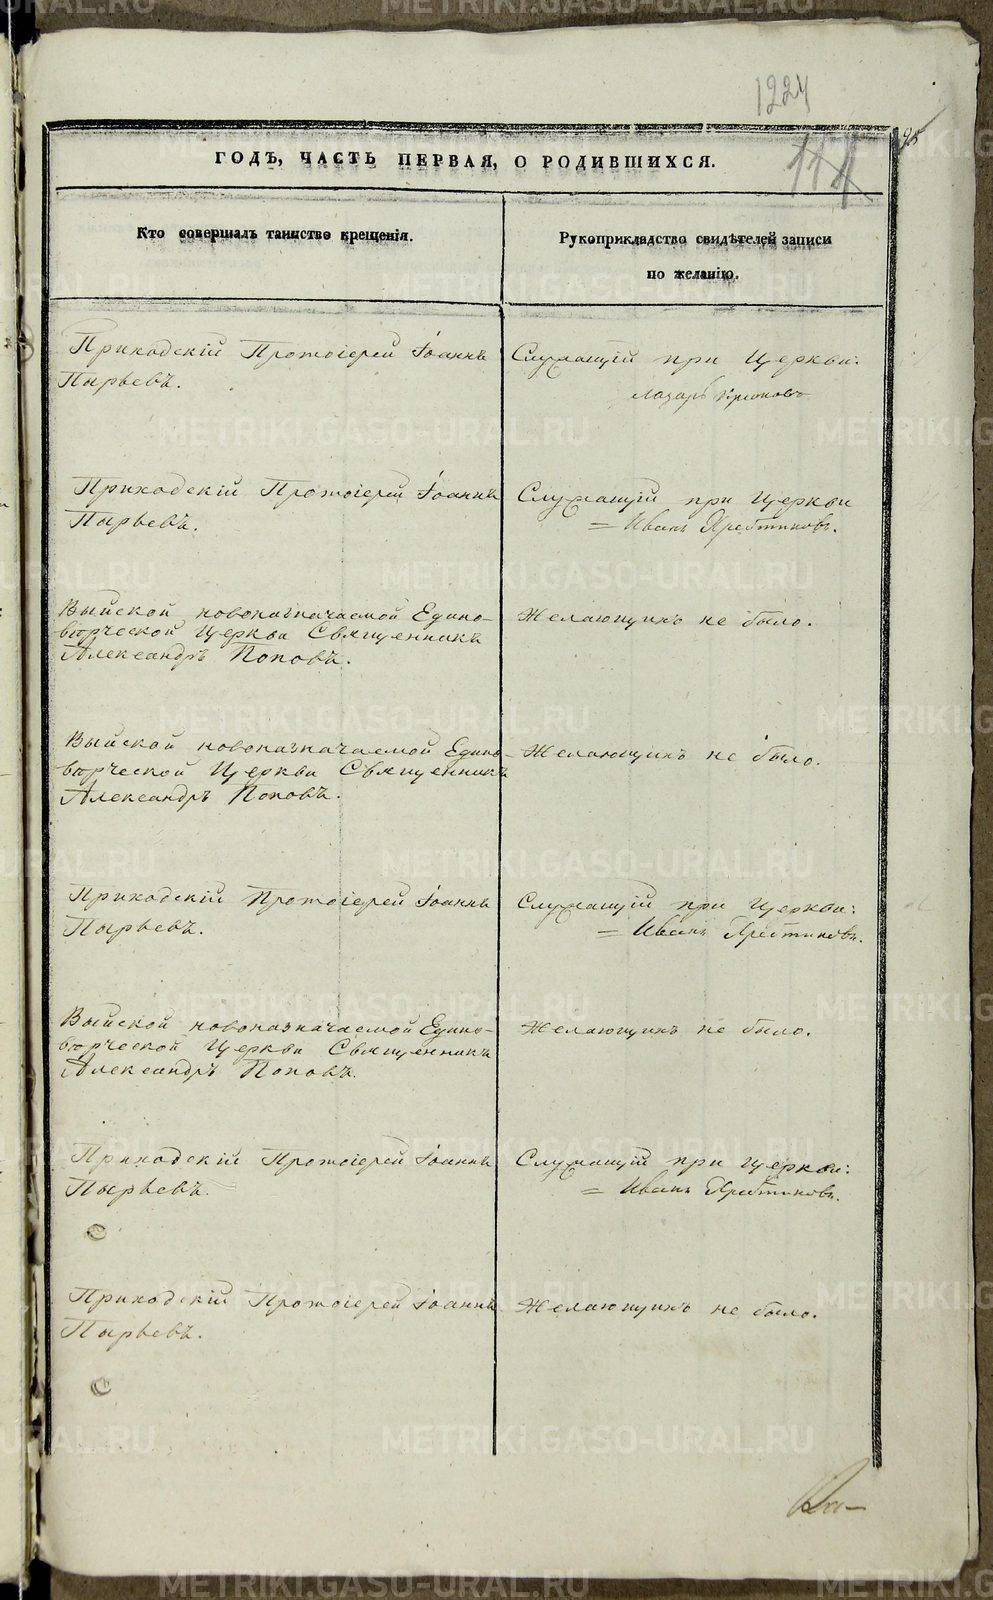 1224
95
ГОДЪ, ЧАСТЬ ПЕРВАЯ, О РОДИВШИХСЯ.
Кто совершалъ таинство крещенія.
Рукоприкладство свидѣтелей записи
по желанію.
Приходскій Протоіерей Іоаннъ
Пырьевъ.
Служащій при Церкви:
Лазарь Крюковъ
Приходскій Протоіерей Іоаннъ
Пырьевъ.
Служащій при Церкви
= Иванъ
Выйской новоназначаемой Едино-
вѣрческой Церкви Священникъ
Александръ Поповъ.
Желающихъ не было.
Выйской новоназначаемой Едино-
вѣрческой Церкви Священникъ
Александръ Поповъ.
Желающихъ не было.
Приходскій Протоіерей Іоаннъ
Пырьевъ.
Служащій при Церкви:
= Иванъ
Выйской новоназначаемой Едино-
вѣрческой Церкви Священникъ
Александръ Поповъ.
Желающихъ не было.
Приходскій Протоіерей Іоаннъ
Пырьевъ.
Служащій при Церкви:
= Иванъ
Приходскій Протоіерей Іоаннъ
Пырьевъ.
Желающихъ не было.
METRIKI.GASO-URAL.RU